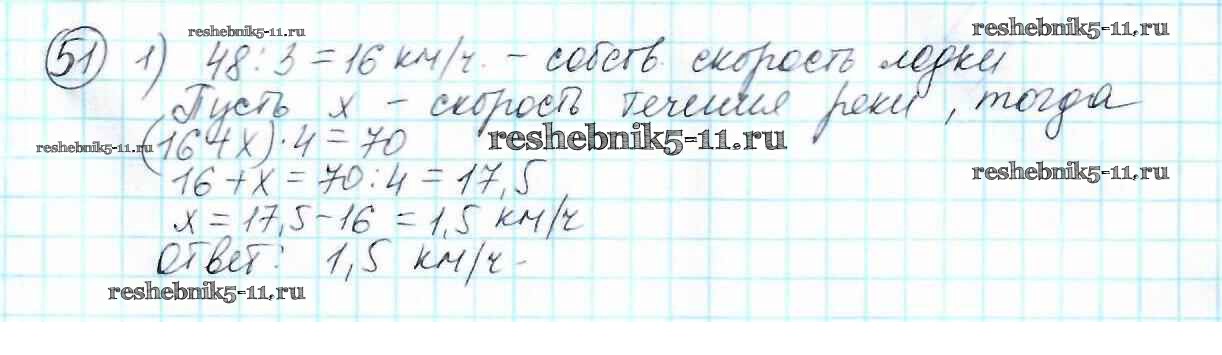 reshebnik5-11.ru
reshebnik5-11.ru
51 1) 48 : 3 = 16 км/ч. – собств. скорость лодки
Пусть x – скорость течения реки, тогда
reshebnik5-11.ru
(16+x)·4 = 70
reshebnik5-11.ru
16+x = 70:4 = 17,5
reshebnik5-11.ru
x = 17,5-16 = 1,5 км/ч
Ответ: 1,5 км/ч.
reshebnik5-11.ru